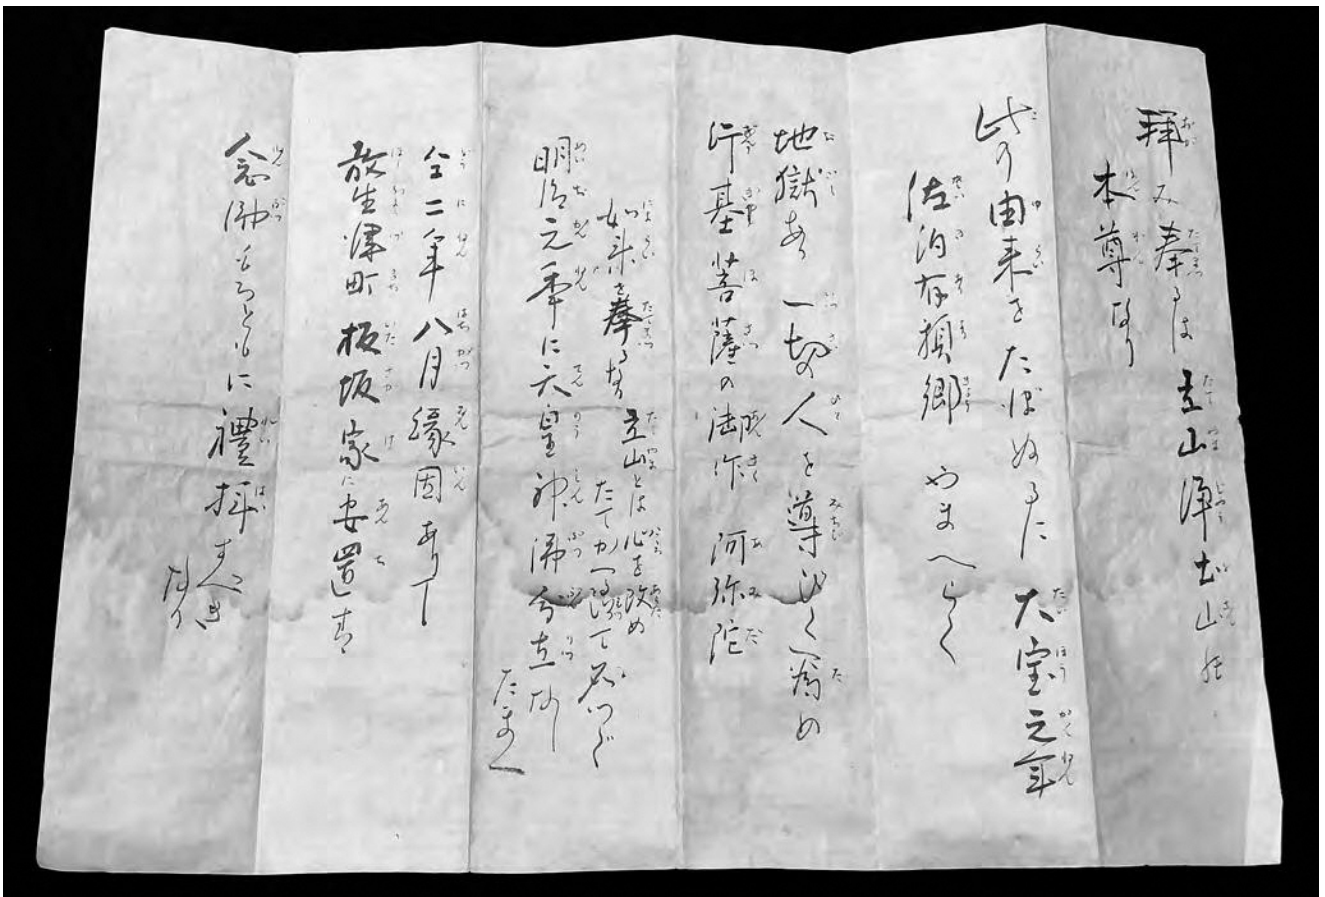 拝み奉るは 立山浄土山の
本尊なり
此の由来をたずぬるに 大宝元年
佐伯有頼郷 やまへらく
地獄あり 一切の人を導びく為め
行基菩薩の御作 阿弥陀
如来を奉る 立山とは心を改め
たてかへ
明治元年に天皇神佛分立なし
たまへ
仝二年八月縁因ありて
放生津町板坂家に安置す
念佛もろともに禮拝すべき
なり